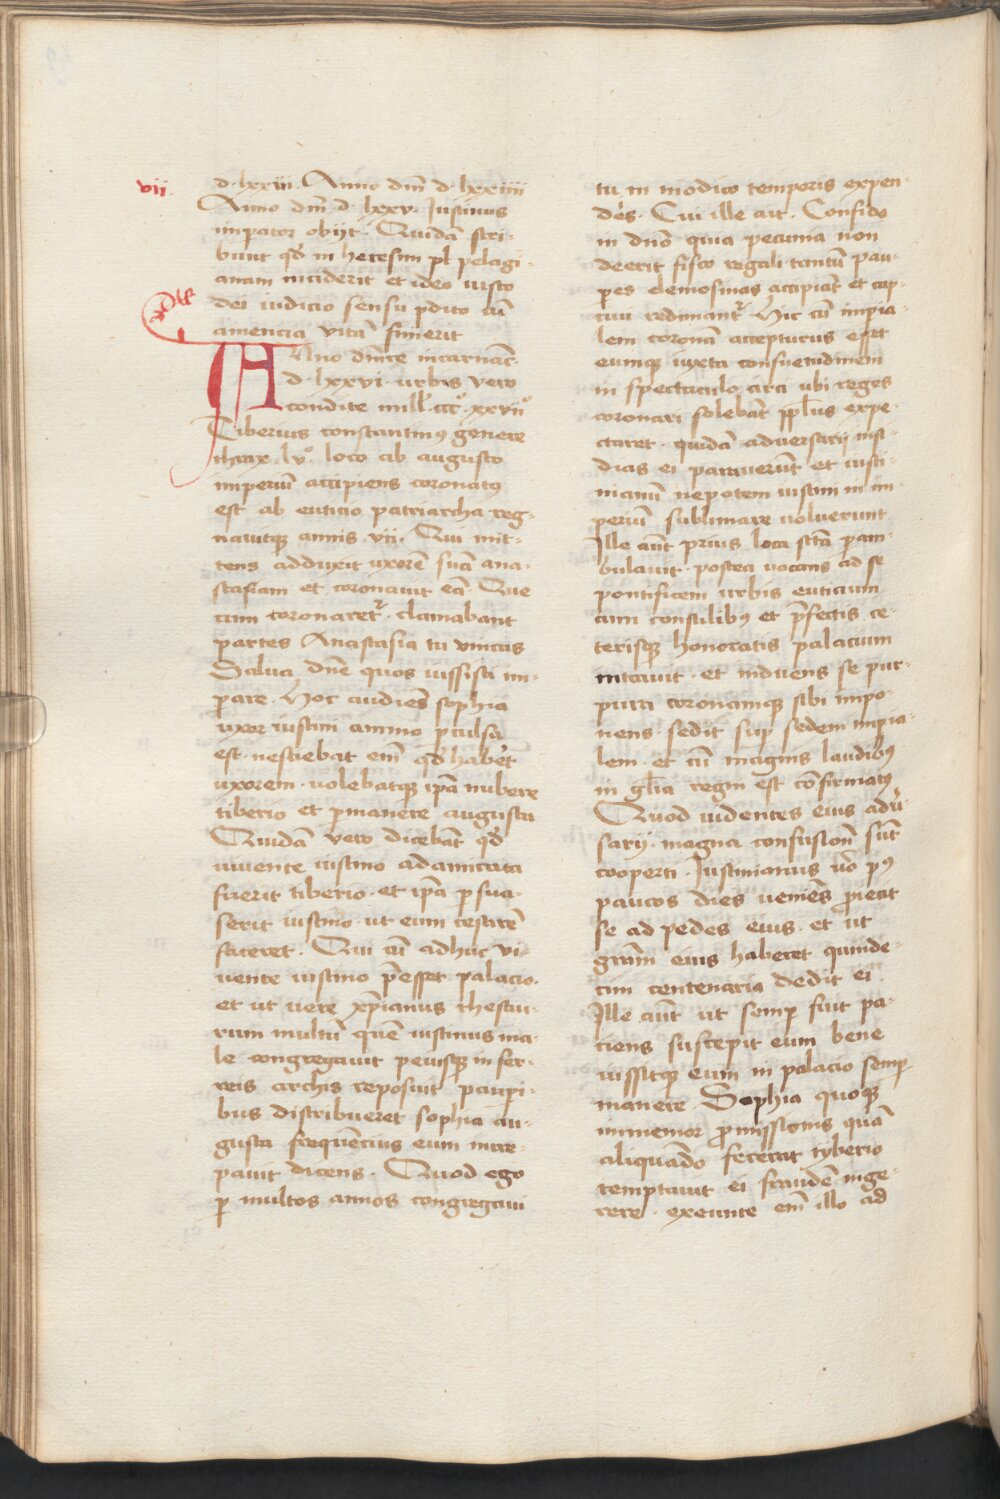 vii
d. lxxiii. Anno dm̄ d. lxxiiii
Anno dm̄ d. lxxv. Iustinus
imperator obijt. Quidā scri-
bunt qd̓ in heresim pl̓ pelagi-
anam inciderit et ideo iusto
dei iudicio sensu ꝑdito cū
amencia vitā finierit
Anno dn̄ice incarnac̄.
d. lxxvi. urbis vero
condite mill̓. ccc̊. xxviiº
Tiberius constantinꝰ genere
thrax. lv̊. loco ab augusto
imperiū accipiens coronatꝰ
est ab euticio patriarcha reg-
nauitqꝫ annis. vii. Qui mit-
tens adduxit uxorē suā ana-
stasiam et coronauit eā. Que
cum coronaret᷑. clamabant
partes Anastasia tu vincas
Salua dn̄e quos iussisti im-
perare. Hoc audiēs sophia
uxor iustini animo ꝑculsa
est. nesciebat em̄ qd̓ habēt
uxorem. uolebatqꝫ ip̄a nubere
tiberio et ꝑmanere augusta
Quidā vero dicebāt qd̓
viuente iustino adamicata
fuerit tiberio. et ip̄a ꝑsua-
serit iustino. ut eum cesarē
faceret. Qui cū adhuc vi-
uente iustino p̄esset palacio.
et ut vere xp̄ianus thesau-
rum multū quē iustinus ma-
le congregauit ꝑ euisqꝫ in fer-
reis archis reposuit pauꝑi-
bus distribueret sophia au-
gusta frequēcius eum incre-
pauit dicens. Quod ego
ꝑ multos annos congregaui
tu in modico temporis expen-
dēs. Cui ille ait. Confido
in dn̄o quia pecunia non
deerit fisco regali tantū pau-
ꝑes elemosinas accipiāt et cap-
tiui redimant᷑. Hic cū impia-
lem coronā accepturus esset
eumqꝫ iuxta consuetudinem
in spectaculo circa ubi reges
coronari solebāt pp̄lus expe-
ctaret. quidā aduersarij insi-
dias ei parauerūt et iusti-
nianū nepotem iustini in im-
perium sublimare uoluerunt
Ille aūt prius loca sc̄ta ꝑam-
bulauit. postea uocans ad se
pontificem urbis euticium
cum consulibꝰ et p̄fectis ce-
terisqꝫ honoratis palacium
intrauit. et induens se pur-
pura coronamqꝫ sibi impo-
nens. sedit suꝑ sedem impia-
lem. et cū magnis laudibꝰ
in gl̄ia regni est cōfirmatꝰ
Quod uidentes eius adū-
sarij. magna confusionē sūt
cooperti. Iustinianus ūo pꝰ
paucos dies ueniēs ꝓiecit
se ad pedes eius. et ut
gram̄ eius haberet quinde-
cim centenaria dedit ei.
Ille aūt ut semꝑ fuit pa-
ciens suscepit eum bene
iussitqꝫ eum in palacio semꝑ
manere. Sophia quoqꝫ
inmemor ꝓmissionis quā
aliquādo fecerat tyberio
temptauit ei fraudē inge-
rere. exeunte em̄ illo ad